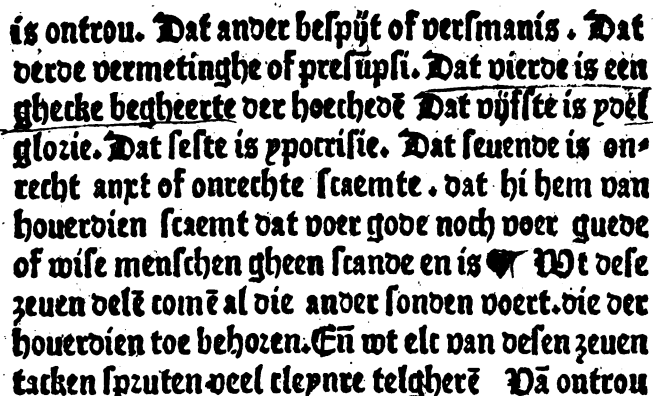 is ontrou. Dat ander beſpijt of verſmanis. Dat
derde vermetinghe of preſūpſi. Dat vierde is een
ghecke begheerte der hoechedē Dat vijfſte is ydel
glorie. Dat ſeſte is ypocriſie. Dat ſeuende is on⸗
recht anxt of onrechte ſcaemte. dat hi hem van
houerdien ſcaemt dat voer gode noch voer guede
of wiſe menſchen gheen ſcande en is Wt deſe
zeuen delē comē al die ander ſonden voert. die der
houerdien toe behoren. Eñ wt elc van deſen zeuen
tacken ſpruten veel cleynre telgherē Vā ontrou